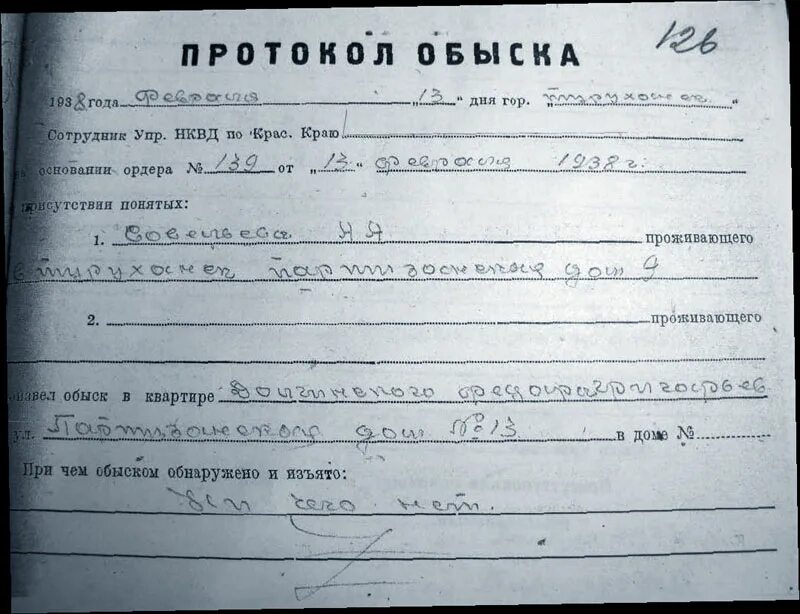 126
ПРОТОКОЛ ОБЫСКА
1938 года Февраля „13“ дня гор. „Туруханск“
Сотрудник Упр. НКВД по Крас. Краю
основании ордера № 139 от „13“ февраля 1938 г.
присутствия понятых:
1. Совельева Я Я проживающего
в Туруханск партизанская дом 9
2. проживающего
извел обыск в квартире Долгинского
ул. Партизанская дом № 13 в доме №
При чем обыском обнаружено и изъято:
Ни чего нет.